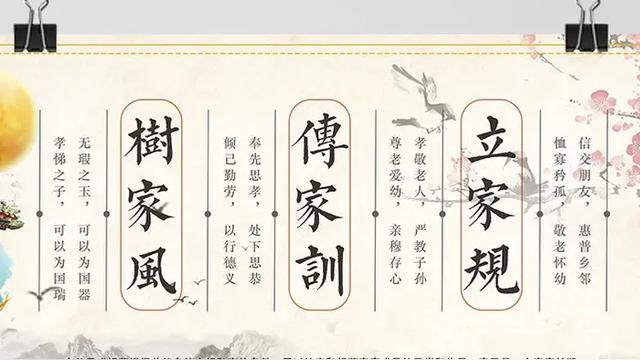 信交朋友，惠普乡邻
恤寡矜孤，敬老怀幼
立家規
孝敬老人，严教子孙
尊老爱幼，亲穆存心
傳家訓
奉先思孝，处下思恭
倾己勤劳，以行德义
樹家風
无瑕之玉，可以为国器
孝悌之子，可以为国瑞